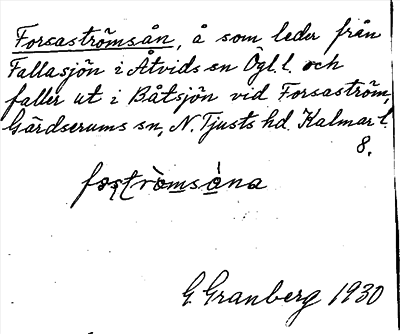 Forsaströmsån, å som leder från
Fallasjön i Åtvids sn Ögl. l. och
faller ut i Båtsjön vid Forsaström,
Gärdserums sn, N. Tjusts hd. Kalmar l.
8.
fo̱s̩tròmså̀na
G. Granberg 1930